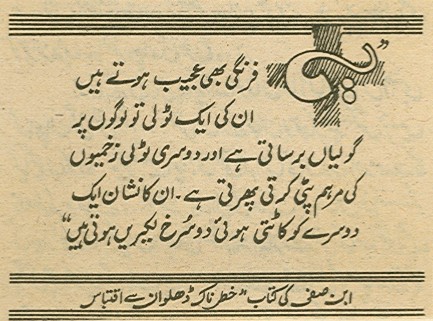 "یہ فرنگی بھی عجیب ہوتے ہیں
ان کی ایک ٹولی تو لوگوں پر
گولیاں برساتی ہے اور دوسری ٹولی زخمیوں
کی مرہم پٹی کرتی پھرتی ہے۔ ان کا نشان ایک
دوسرے کو کاٹتی ہوئی دو سُرخ لکیریں ہوتی ہیں"
ابن صفی کی کتاب "خطرناک ڈھلوان سے اقتباس